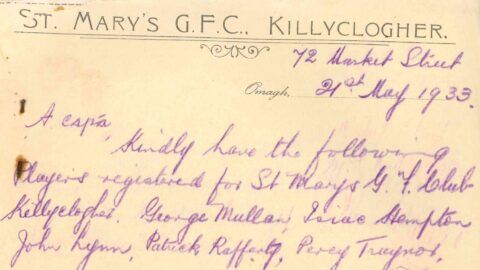 ST. MARY'S G.F.C., KILLYCLOGHER.
72 Market Street
Omagh, 21st May 1933.
A cara,
Kindly have the following
Players registered for St Marys G. F. Club
Killyclogher. George Mullan, Isiac Hempton
John Lynn, Patrick Rafferty, Percy Traynor,